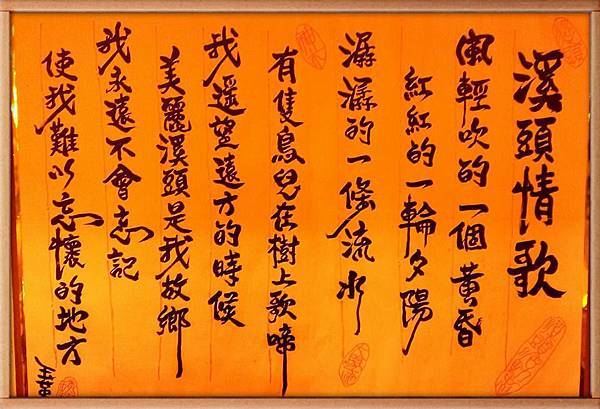 溪頭情歌
風輕吹的一個黃昏
紅紅的一輪夕陽
潺潺的一條流水
有隻鳥兒在樹上歌啼
我遥望遠方的時候
美麗溪頭是我故鄉
我永遠不會忘記
使我難以忘懷的地方